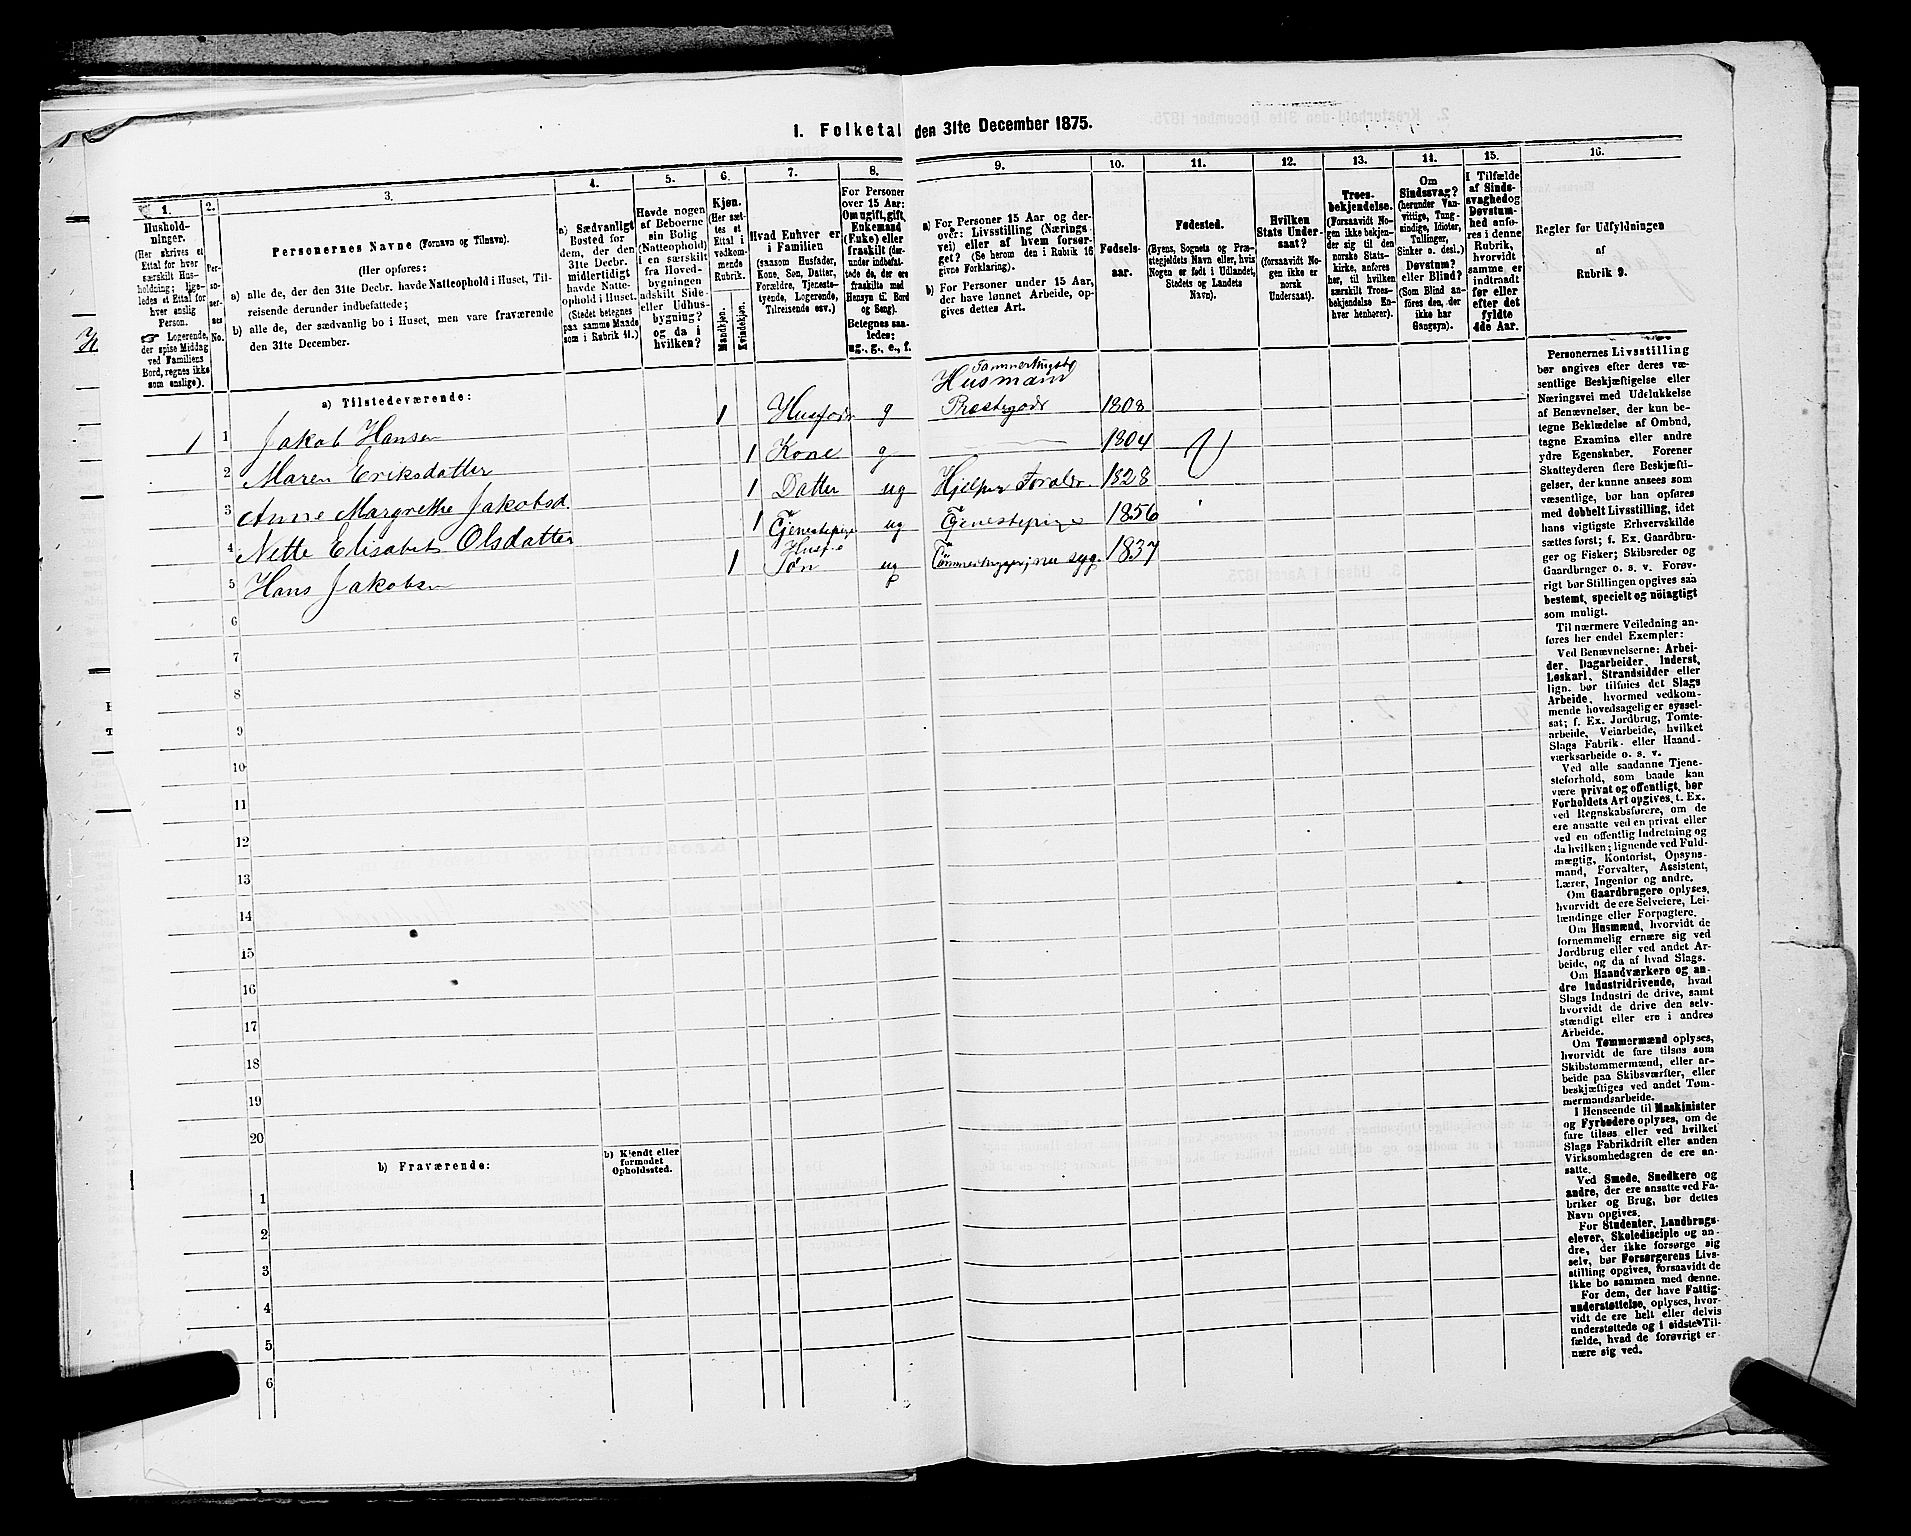 I. Folketal den 31te December 1875.
1. 2. 3. 4. 5. 6. 7. 8. 9. 10. 11. 12. 13. 14. 15. 16.
Hushold-
ninger.
(Her skrives et
Ettal for hver
særskilt Hus-
holdning; lige-
ledes et Ettal for
hver enslig
Person.
Logerende,
der spise Middag
ved Familiens
Bord, regnes ikke
som enslige).
Per-
so-
ner-
nes
No.
Personernes Navne (Fornavn og Tilnavn).
(Her opføres:
a) alle de, der den 31te Decbr. havde Natteophold i Huset, Til-
reisende derunder indbefattede;
b) alle de, der sædvanlig bo i Huset, men vare fraværende
den 31te December.
a) Sædvanligt
Bosted for
dem, der den
31te Decbr.
midlertidigt
havde Natte-
ophold i Huset.
(Stedet betegnes
paa samme Maade
som i Rubrik 11.)
Havde nogen
af Beboerne
sin Bolig
(Natteophold)
i en særskilt
fra Hoved-
bygningen
adskilt Side
eller Udhus-
bygning?
og da i
hvilken?
Kjøn.
(Her sæt-
tes et
Ettal i
vedkom-
mende
Rubrik.
Mandkjøn.
Kvindekjøn.
Hvad Enhver er
i Familien
(saasom Husfader,
Kone, Søn, Datter,
Forældre, Tjeneste-
tyende, Logerende,
Tilreisende osv.)
For Personer
over 15 Aar:
Om ugift, gift,
Enkemand
(Enke) eller
fraskilt (der-
under indbefat-
tede de, der ere
fraskilte med
Hensyn til Bord
og Seng).
Betegnes saa-
ledes:
ug., g., e., f.
a) For Personer 15 Aar og der-
over: Livsstilling (Nærings-
vei) eller af hvem forsør-
get? (Se herom den i Rubrik 16
givne Forklaring).
b) For Personer under 15 Aar,
der have lønnet Arbeide, op-
gives dettes Art.
Fødsels-
aar.
Fødested.
(Byens, Sognets og Præ-
stegjeldets Navn eller, hvis
Nogen er født i Udlandet,
Stedets og Landets
Navn).
Hvilken
Stats Under-
saat?
(forsaavidt No-
gen ikke er
norsk
Undersaat).
Troes-
bekjendelse.
(Forsaavidt No-
gen ikke bekjen-
der sig til den
norske Stats-
kirke, anføres
her, til hvilken
særskilt Troes-
bekjendelse En-
hver henhører).
Om
Sindssvag?
(herunder Van-
vittige, Tung-
sindige, Idioter,
Tullinger,
Sinker o. desl.)
Døvstum?
eller Blind?
(Som Blind an-
føres den, der
ikke har
Gangsyn).
I Tilfælde
af Sinds-
svaghed og
Døvstum-
hed anfø-
res i denne
Rubrik,
hvorvidt
samme er
indtraadt
før eller
efter det
fyldte
4de Aar.
Regler for Udfyldningen
af
Rubrik 9.
a) Tilstedeværende:
1 1 Jakob Hansen 1 Husfader g Husmand 1808
2 Maren Eriksdatter 1 Kone g 1804
3 Anne Margrethe Jakobsd. 1 Datter ug Hjelper Foreldr. 1828
4 Nette Elisabet Olsdatter 1 Tjenestepige ug Tjenestepige 1856
5 Hans Jakobsen 1 Søn ug Tömmerhugger, nu syg. 1837
6
7
8
9
10
11
12
13
14
15
16
17
18
19
20
b) Fraværende:
b) Kjendt eller
formodet
Opholdssted.
1
2
3
4
5
6
Personernes Livsstilling
bør angives efter deres væ-
sentlige Beskjæftigelse eller
Næringsvei med Udelukkelse
af Benævnelser, der kun be-
tegne Beklædelse af Ombud,
tagne Examina eller andre
ydre Egenskaber. Forener
Skatteyderen flere Beskjæfti-
gelser, der kunne ansees som
væsentlige, bør han opføres
med dobbelt Livsstilling, idet
hans vigtigste Erhvervskilde
sættes først; f. Ex. Gaardbru-
ger og Fisker; Skibsreder og
Gaardbruger o. s. v. Forøv-
rigt bør Stillingen opgives saa
bestemt, specielt og nøiagtigt
som muligt.
Til nærmere Veiledning an-
føres her endel Exempler:
Ved Benævnelserne: Arbei-
der, Dagarbeider, Inderst,
Løskarl, Strandsidder eller
lign. bør tilføies det Slags
Arbeide, hvormed vedkom-
mende hovedsagelig er syssel-
sat; f. Ex. Jordbrug, Tomte-
arbeide, Veiarbeide, hvilket
Slags Fabrik- eller Haand-
værksarbeide o. s. v.
Ved alle saadanne Tjene-
steforhold, som baade kan
være privat og offentligt, bør
Forholdets Art opgives, t. Ex.
ved Regnskabsførere, om de
ere ansatte ved en privat eller
ved en offentlig Indretning og
da hvilken; lignende ved Fuld-
mægtig, Kontorist, Opsyns-
mand, Forvalter, Assistent,
Lærer, Ingeniør og andre.
Om Gaardbrugere oplyses,
hvorvidt de ere Selveiere, Lei-
lændinge eller Forpagtere.
Om Husmænd, hvorvidt de
fornemmelig ernære sig ved
Jordbrug eller ved andet Ar-
beide, og da af hvad Slags.
Om Haandværkere og an-
dre Industridrivende, hvad
Slags Industri de drive, samt
hvorvidt de drive den selv-
stændigt eller ere i andres
Arbeide.
Om Tømmermænd oplyses,
hvorvidt de fare tilsøs som
Skibstømmermænd, eller ar-
beide paa Skibsværfter, eller
beskjæftiges ved andet Tøm-
mermandsarbeide.
I Henseende til Maskinister
og Fyrbødere oplyses, om de
fare tilsøs eller ved hvilket
Slags Fabrikdrift eller anden
Virksomhedsgren de ere an-
satte.
Ved Smede, Snedkere og
andre, der ere ansatte ved Fa-
briker og Brug, bør dettes
Navn opgives.
For Studenter, Landbrugs-
elever, Skoledisciple og an-
dre, der ikke forsørge sig
selv, bør Forsørgerens Livs-
stilling opgives, forsaavidt de
ikke bo sammen med denne.
For dem, der have Fattig-
understøttelse, oplyses, hvor-
vidt de ere helt eller delvis
understøttede og i sidste Til-
fælde, hvad de forøvrigt er-
nære sig ved.